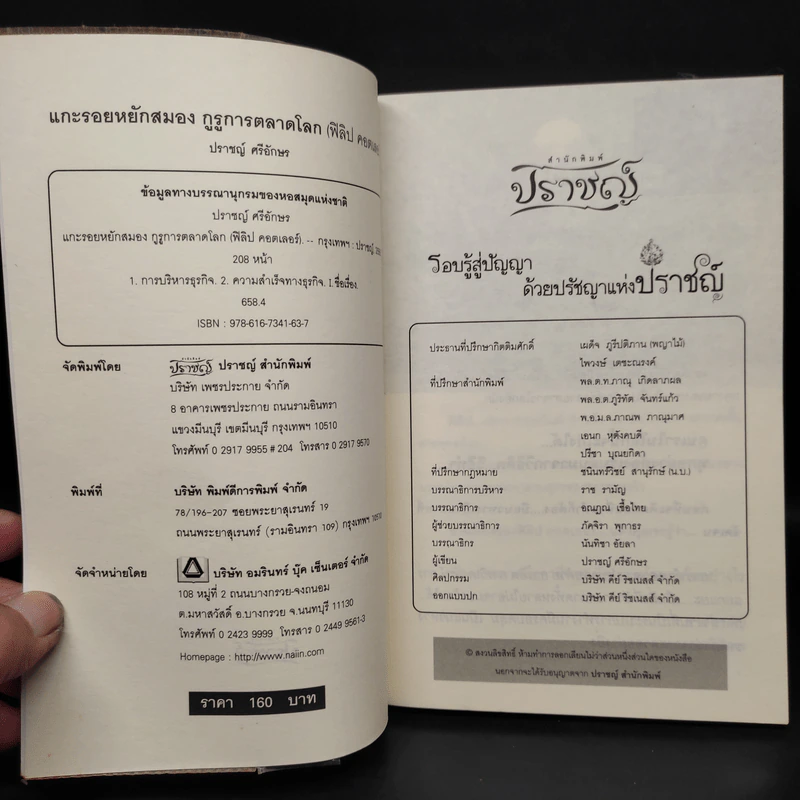 แกะรอยหยักสมอง กูรูการตลาดโลก (ฟิลิป คอตเลอ
ปราชญ์ ศรีอักษร
ข้อมูลทางบรรณานุกรมของหอสมุดแห่งชาติ
ปราชญ์ ศรีอักษร
แกะรอยหยักสมอง กูรูการตลาดโลก (ฟิลิป คอตเลอร์). -- กรุงเทพฯ : ปราชญ์
208 หน้า
1. การบริหารธุรกิจ. 2. ความสำเร็จทางธุรกิจ. I.ชื่อเรื่อง.
658.4
ISBN : 978-616-7341-63-7
จัดพิมพ์โดย ปราชญ์ ปราชญ์ สำนักพิมพ์
บริษัท เพชรประกาย จำกัด
8 อาคารเพชรประกาย ถนนรามอินทรา
แขวงมีนบุรี เขตมีนบุรี กรุงเทพฯ 10510
โทรศัพท์ 0 2917 9955 # 204 โทรสาร 0 2917 9570
พิมพ์ที่ บริษัท พิมพ์ดีการพิมพ์ จำกัด
78/196-207 ซอยพระยาสุเรนทร์ 19
ถนนพระยาสุเรนทร์ (รามอินทรา 109) กรุงเทพฯ
จัดจำหน่ายโดย บริษัท อมรินทร์ บุ๊ค เซ็นเตอร์ จำกัด
108 หมู่ที่ 2 ถนนบางกรวย-จงถนอม
ต.มหาสวัสดิ์ อ.บางกรวย จ.นนทบุรี 11130
โทรศัพท์ 0 2423 9999 โทรสาร 0 2449 9561-3
Homepage : http://www.naiin.com
ราคา 160 บาท
สำนักพิมพ์
ปราชญ์
รอบรู้สู่ปัญญา
ด้วยปรัชญาแห่งปราชญ์
ประธานที่ปรึกษากิตติมศักดิ์ เผด็จ ภูรีปติภาน (พญาไม้)
ไพวงษ์ เตชะณรงค์
ที่ปรึกษาสำนักพิมพ์ พล.ต.ท.ภาณุ เกิดลาภผล
พล.อ.ต.ภูริทัต จันทร์แก้ว
พ.อ.ม.ล.ภาณพ ภาณุมาศ
เอนก หุตังคบดี
ปรีชา บุณยกิดา
ที่ปรึกษากฎหมาย ชนินทร์วิชย์ สานุรักษ์ (น.บ.)
บรรณาธิการบริหาร ราช รามัญ
บรรณาธิการ อณฎณ เชื้อไทย
ผู้ช่วยบรรณาธิการ ภัคจิรา พุกาธร
บรรณาธิกร นันทิชา อัยลา
ผู้เขียน ปราชญ์ ศรีอักษร
ศิลปกรรม บริษัท คีย์ ริชเนสส์ จำกัด
ออกแบบปก บริษัท คีย์ ริชเนสส์ จำกัด
© สงวนลิขสิทธิ์ ห้ามทำการลอกเลียนไม่ว่าส่วนหนึ่งส่วนใดของหนังสือ
นอกจากจะได้รับอนุญาตจาก ปราชญ์ สำนักพิมพ์